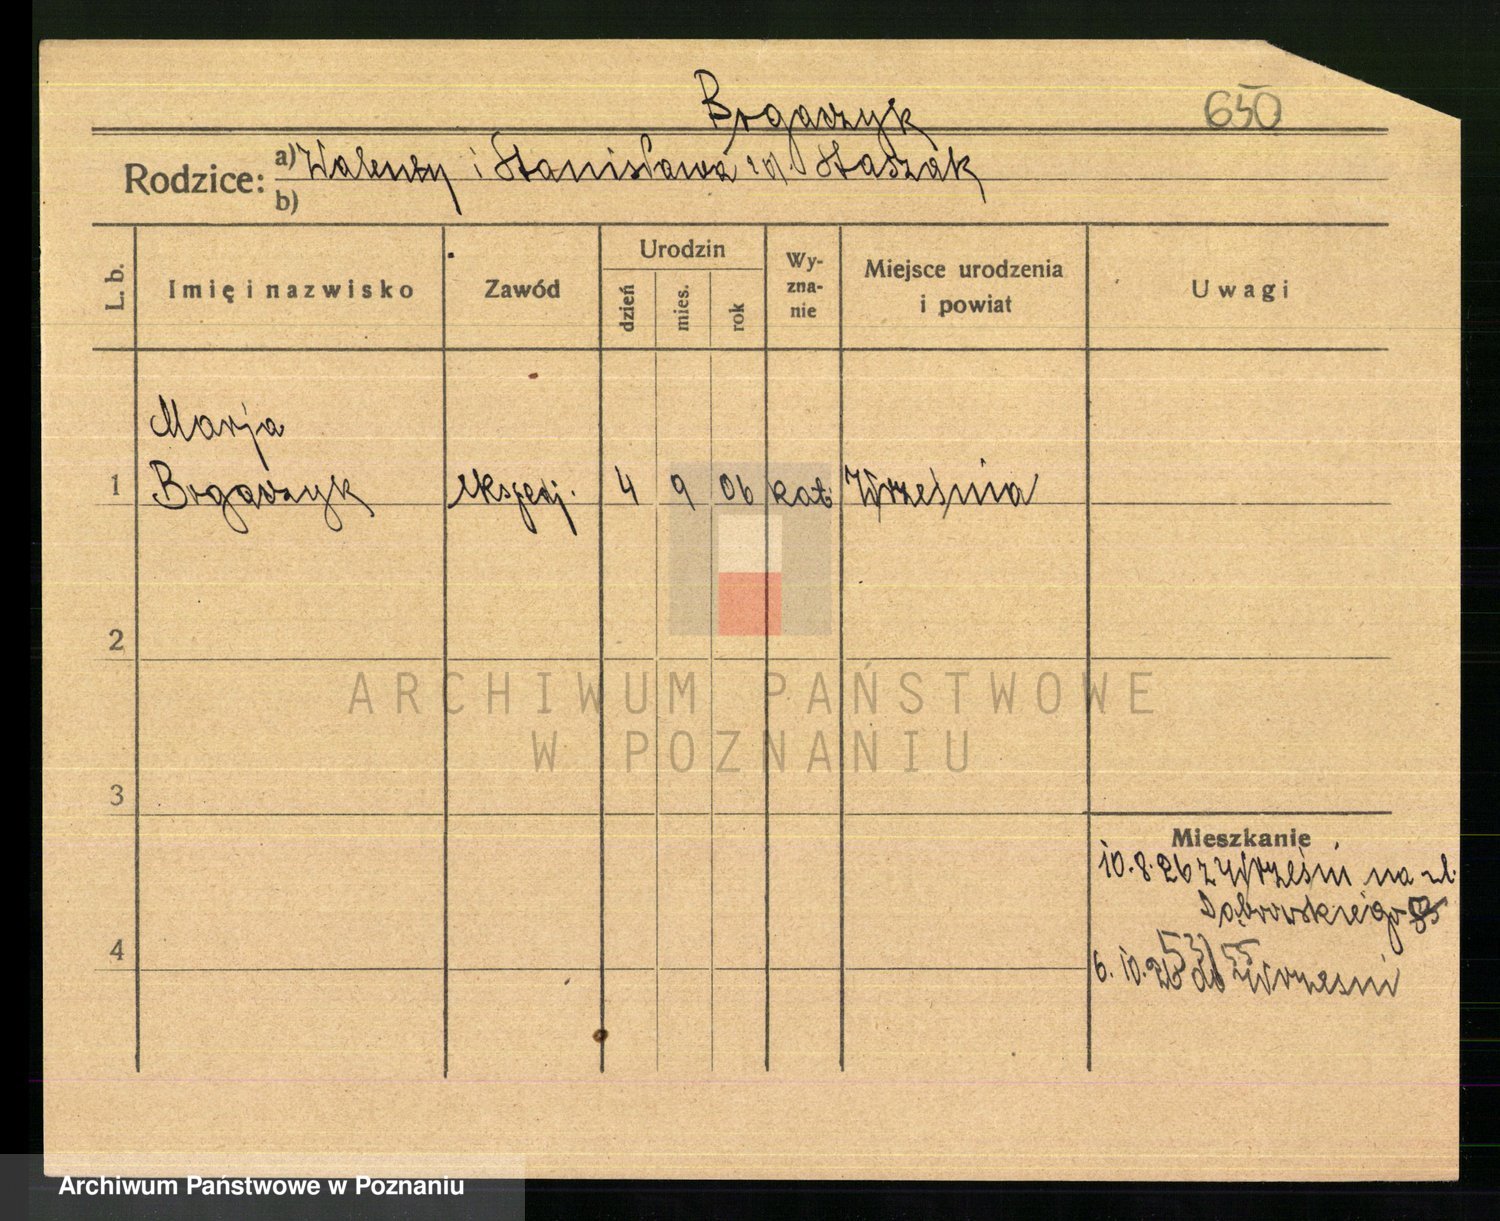 650
Bogaczyk
Rodzice: a) Walenty i Stanisława Staszak
b)
L. b. Imię i nazwisko Zawód Urodzin dzień mies. rok Wy-zna-nie Miejsce urodzenia i powiat Uwagi
Marja
1 Bogaczyk ekspedj. 4 9 06 kat. Września
2
ARCHIWUM PAŃSTWOWE
W POZNANIU
3
Mieszkanie
10.8.26 z Wrześni na ul.
Dąbrowskiego
4
53/55
6.10.26 do Wrzesni
Archiwum Państwowe w Poznaniu